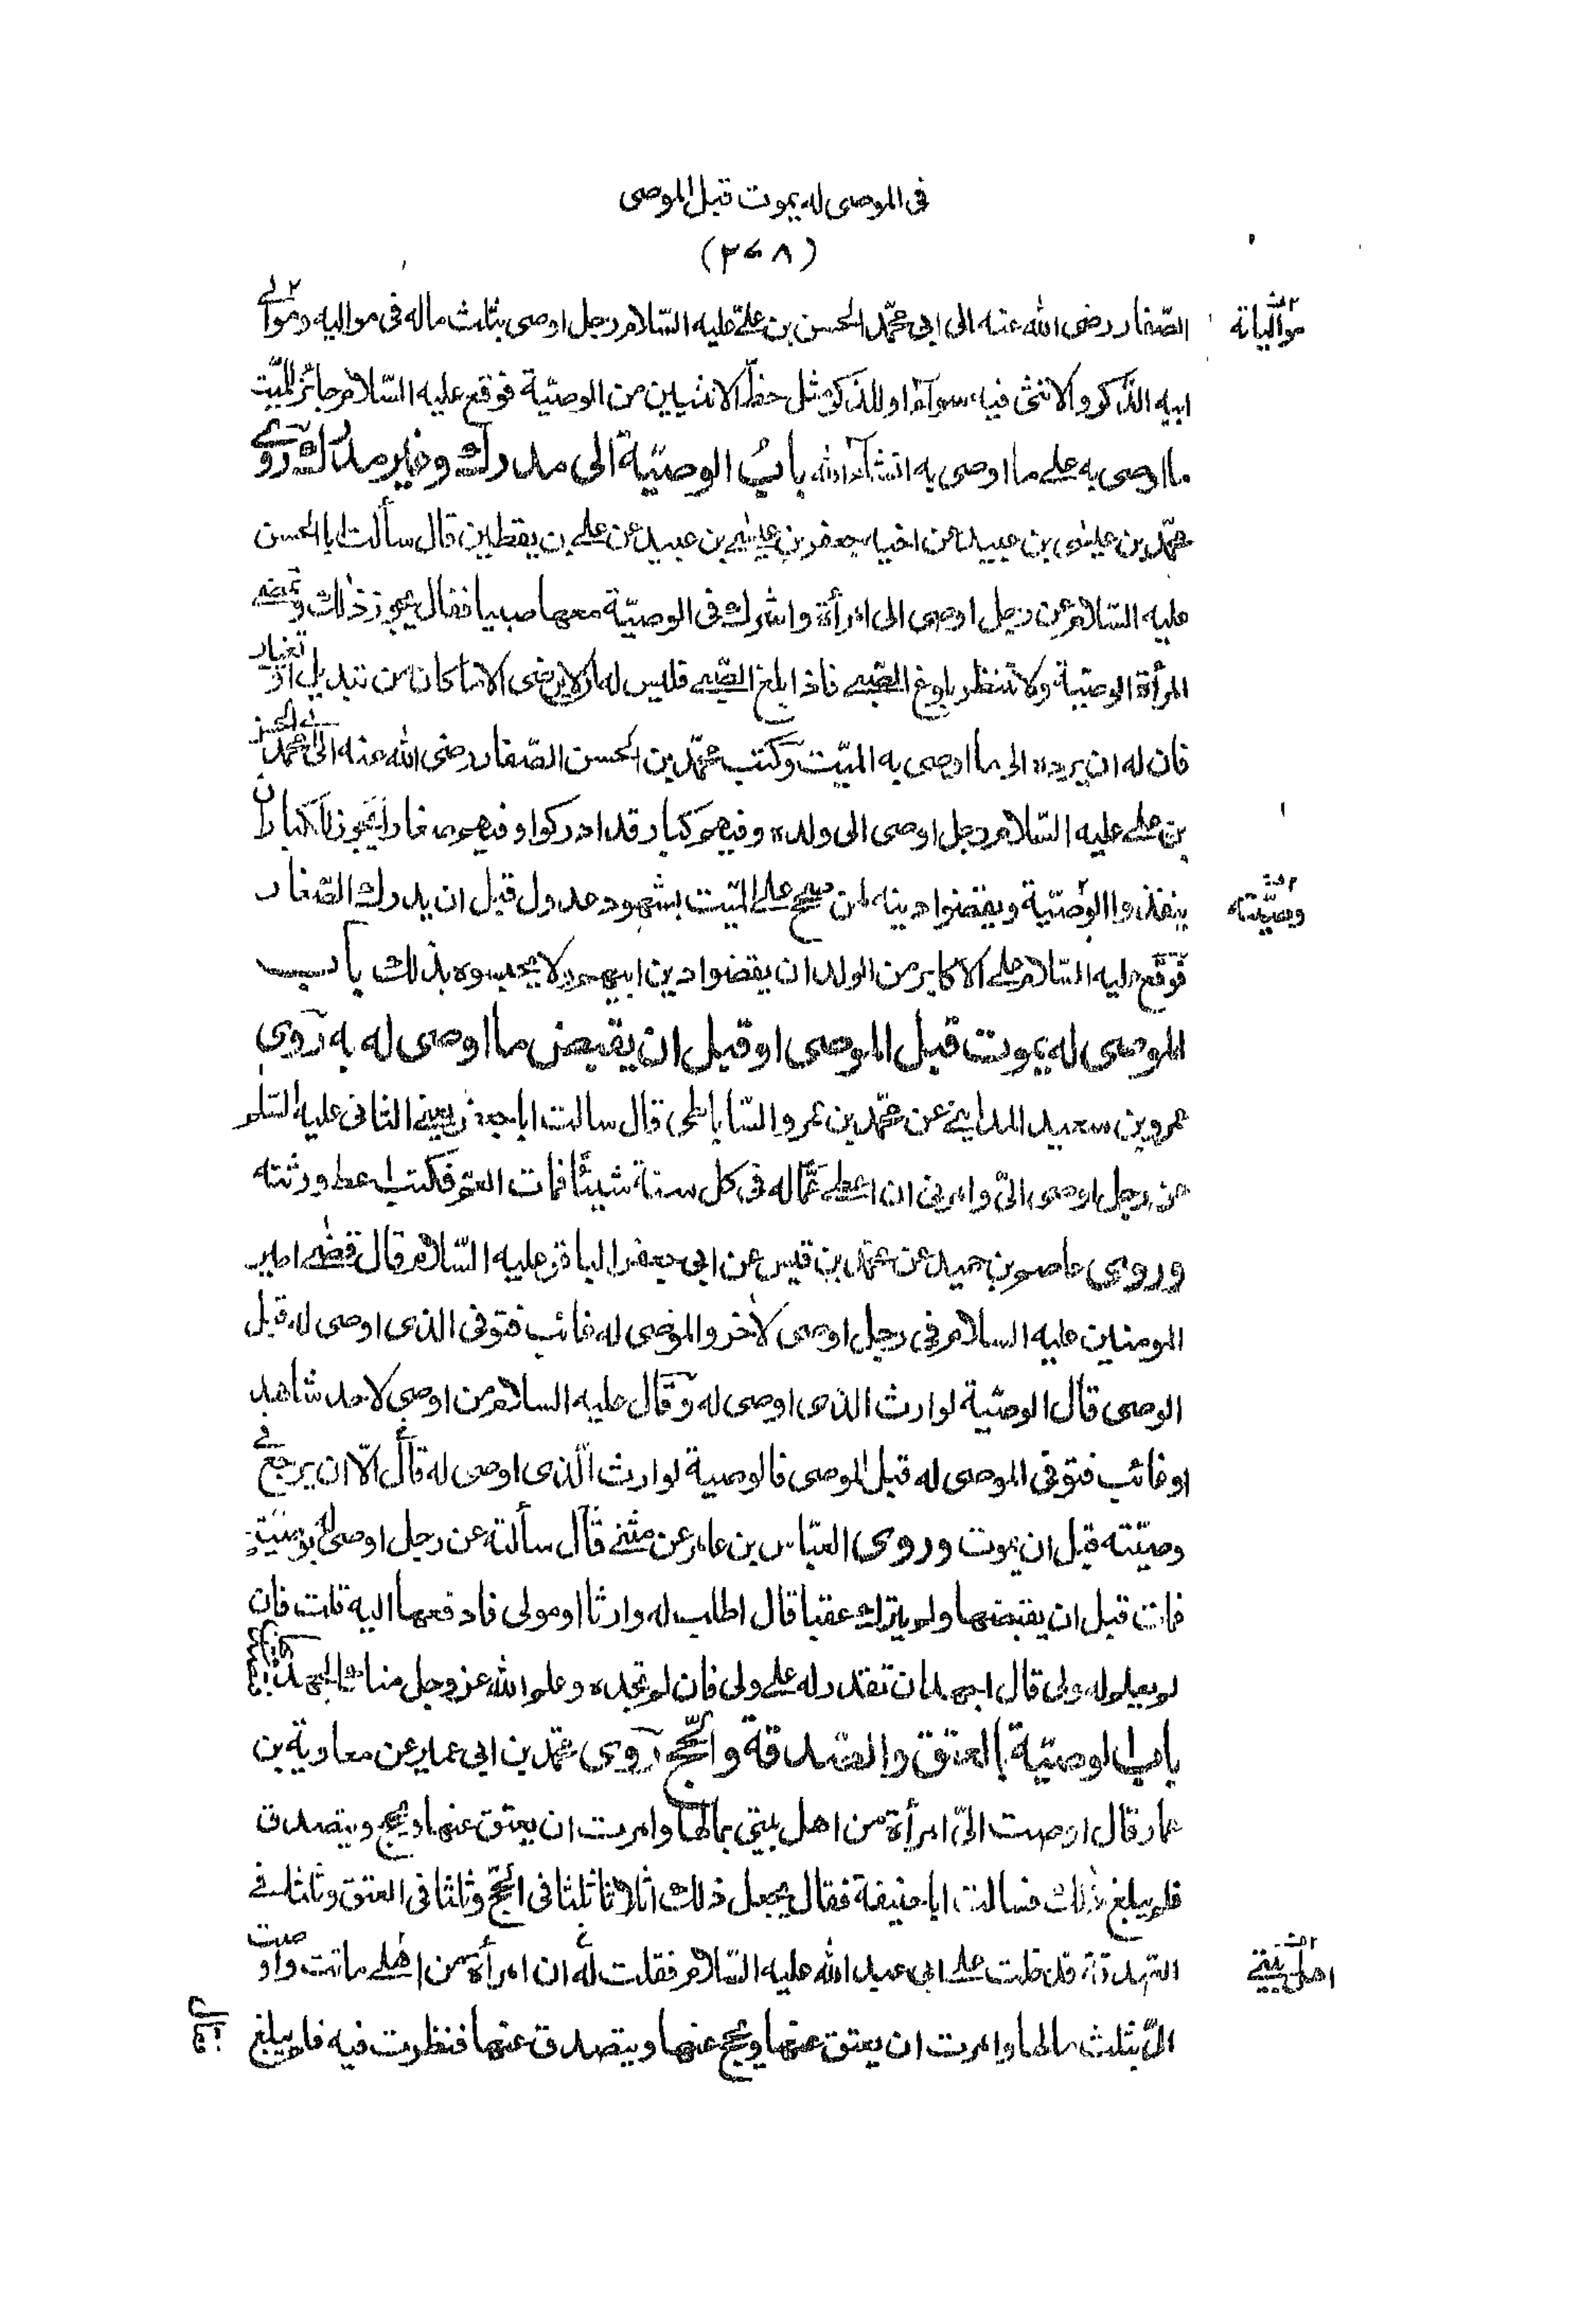 فى الموصى له يموت قبل الموصى
(٣٧٨)
الصّفار رضى الله عنه الى ابى محمّد الحسن بن علىّ عليه السّلام رجل اوصى بثلث ماله فى مواليه وموالى
مواليانه
ابيه الذّكر والانثى فيه سوآء او للذكر مثل حظّ الانثيين من الوصيّة فوقع عليه السّلام جائز للميّت
ما اوصى به على ما اوصى به انشآء الله باب الوصيّة الى مدرك وغير مدرك روى
محمّد بن عيسى بن عبيد عن اخيه جعفر بن عيسى بن عبيد عن على بن يقطين قال سألت ابا الحسن
عليه السّلام عن رجل اوصى الى امرأة واشرك فى الوصيّة معها صبيا فقال يجوز ذلك وتمضى
المرأة الوصيّة ولا تنتظر بلوغ الصّبى فاذا بلغ الصّبى فليس له ان لا يرضى الا ما كان من تبديل او تغيير
فان له ان يرده الى ما اوصى به الميّت وكتب محمّد بن الحسن الصّفار رضى الله عنه الى ابى محمد الحسن
بن على عليه السّلام رجل اوصى الى ولده وفيهم كبار قد ادركوا وفيهم صغار ايجوز للكبار ان
ينفذوا الوصيّة ويقضوا دينه لمن صح على الميّت بشهود عدول قبل ان يدرك الصّغار
وصيّته
فوقّع عليه السّلام على الاكابر من الولد ان يقضوا دين ابيهم ولا يحبسوه بذلك باب
الموصى له يموت قبل الموصى او قبل ان يقبض ما اوصى له به روى
عمرو بن سعيد المداينى عن محمّد بن عمر والسّاباطى قال سالت ابا جعفر يعنى الثانى عليه السّلم
عن رجل اوصى الىّ وامرنى ان اعطى عمّا له فى كل سنة شيئًا فمات العم فكتب اعط ورثته
وروى عاصم بن حميد عن محمّد بن قيس عن ابى جعفر الباقر عليه السّلام قال قضى امير
المومنين عليه السلام فى رجل اوصى لاخر والموصى له غائب فتوفى الذى اوصى له قبل
الوصى قال الوصيّة لوارث الذى اوصى له وقال عليه السلام من اوصى لاحد شاهد
او غائب فتوفى الموصى له قبل الموصى فالوصية لوارث الّذى اوصى له قال الّا ان يرجع فى
وصيّته قبل ان يموت وروى العبّاس بن عامر عن مثنى قال سألته عن رجل اوصى له بوصيّة
فمات قبل ان يقبضها ولم يترك عقبا قال اطلب له وارثا او مولى فادفعها اليه قلت فان
لم يعلم له ولى قال اجهد ان تقدر له على ولى فان لم تجده وعلم الله عزوجل منك الجهد
باب الوصيّة بالعتق والصّدقة والحّج روى محمّد بن ابى عمير عن معاوية بن
عمار قال اوصت الىّ امرأة من اهل بيتى بمالها وامرت ان يعتق عنها ويحج ويتصدق
فلم يبلغ ذلك فسالت ابا حنيفة فقال يجعل ذلك اثلاثا ثلثا فى الحّج وثلثا فى العتق وثلثا فى
الصّدقة فدخلت على ابى عبد الله عليه السّلام فقلت له ان امرأة من اهلى ماتت واوصت
اهل بيتى
الىّ بثلث مالها وامرت ان يعتق عنها ويحج عنها ويتصدق عنها فنظرت فيه فلم يبلغ